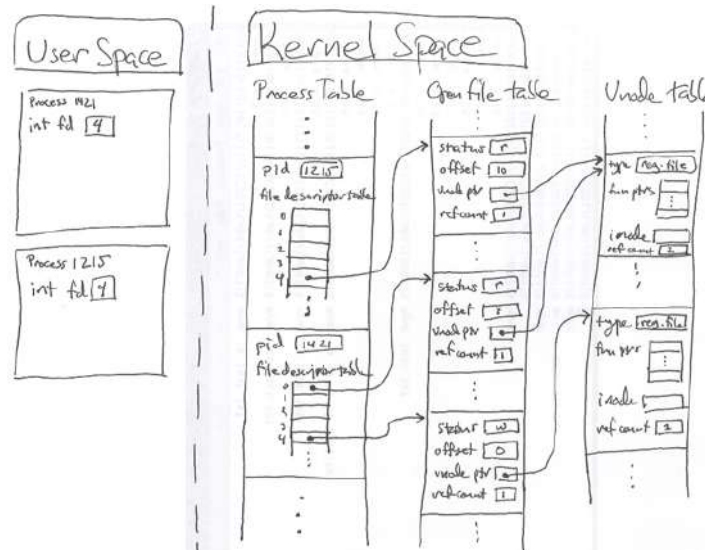 User Space
Process 1421
int fd 4
Process 1215
int fd 4
Kernel Space
Process Table
pid 1215
file descriptor table
0
1
2
3
4
pid 1421
file descriptor table
0
1
2
3
4
Open file table
status r
offset 10
vnode ptr
refcount 1
status r
offset
vnode ptr
refcount 1
status w
offset 0
vnode ptr
refcount 1
Vnode table
type reg. file
fun ptrs
inode
ref count 2
type reg. file
fun ptrs
inode
ref count